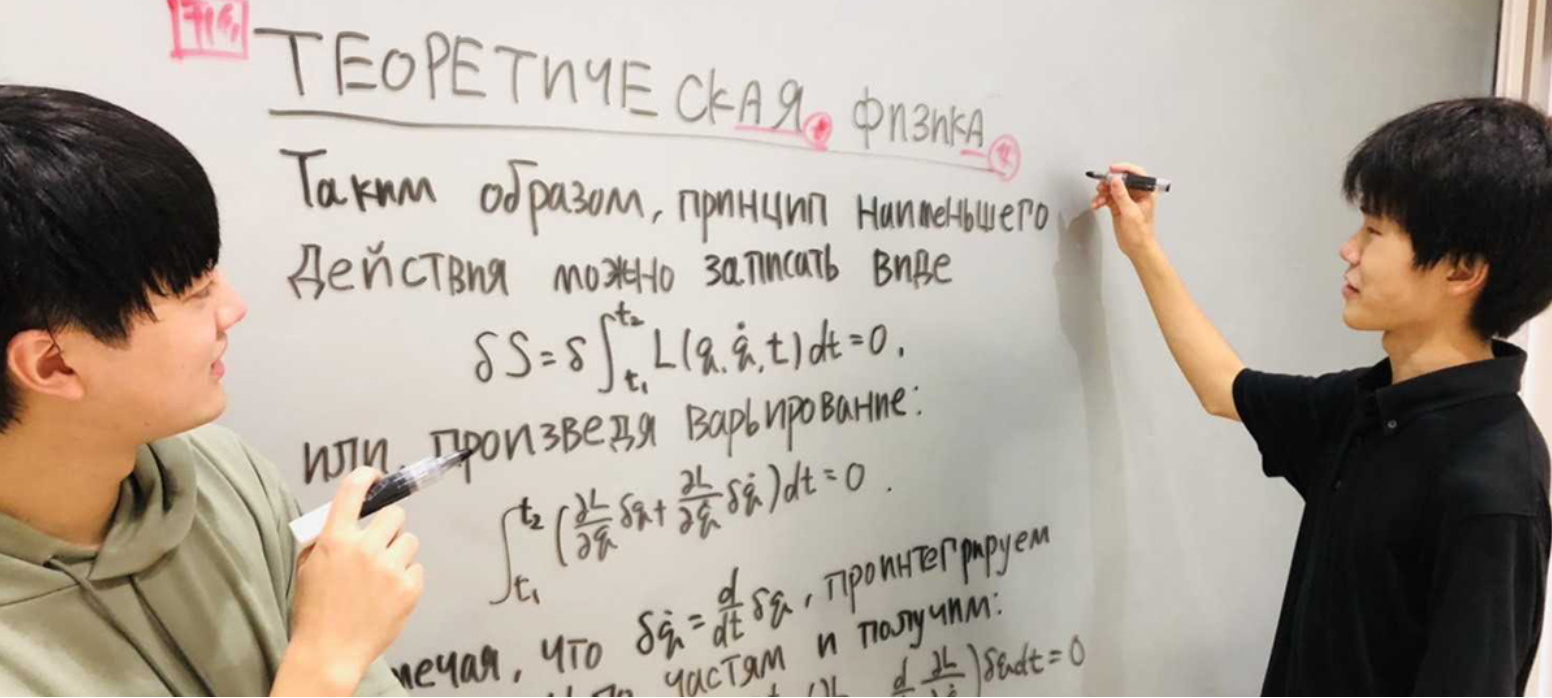 ТЕОРЕТИЧЕСКАЯ ФИЗИКА
Таким образом, принцип наименьшего
Действия можно записать виде
δS = δ∫_{t₁}^{t₂} L(q, q̇, t) dt = 0,
или, произведя варьирование:
∫_{t₁}^{t₂} (∂L/∂q δq + ∂L/∂q̇ δq̇) dt = 0.
мечая, что δq̇ = d/dt δq, проинтегрируем
частям и получим:
d/dt ∂L/∂q̇) δq dt = 0